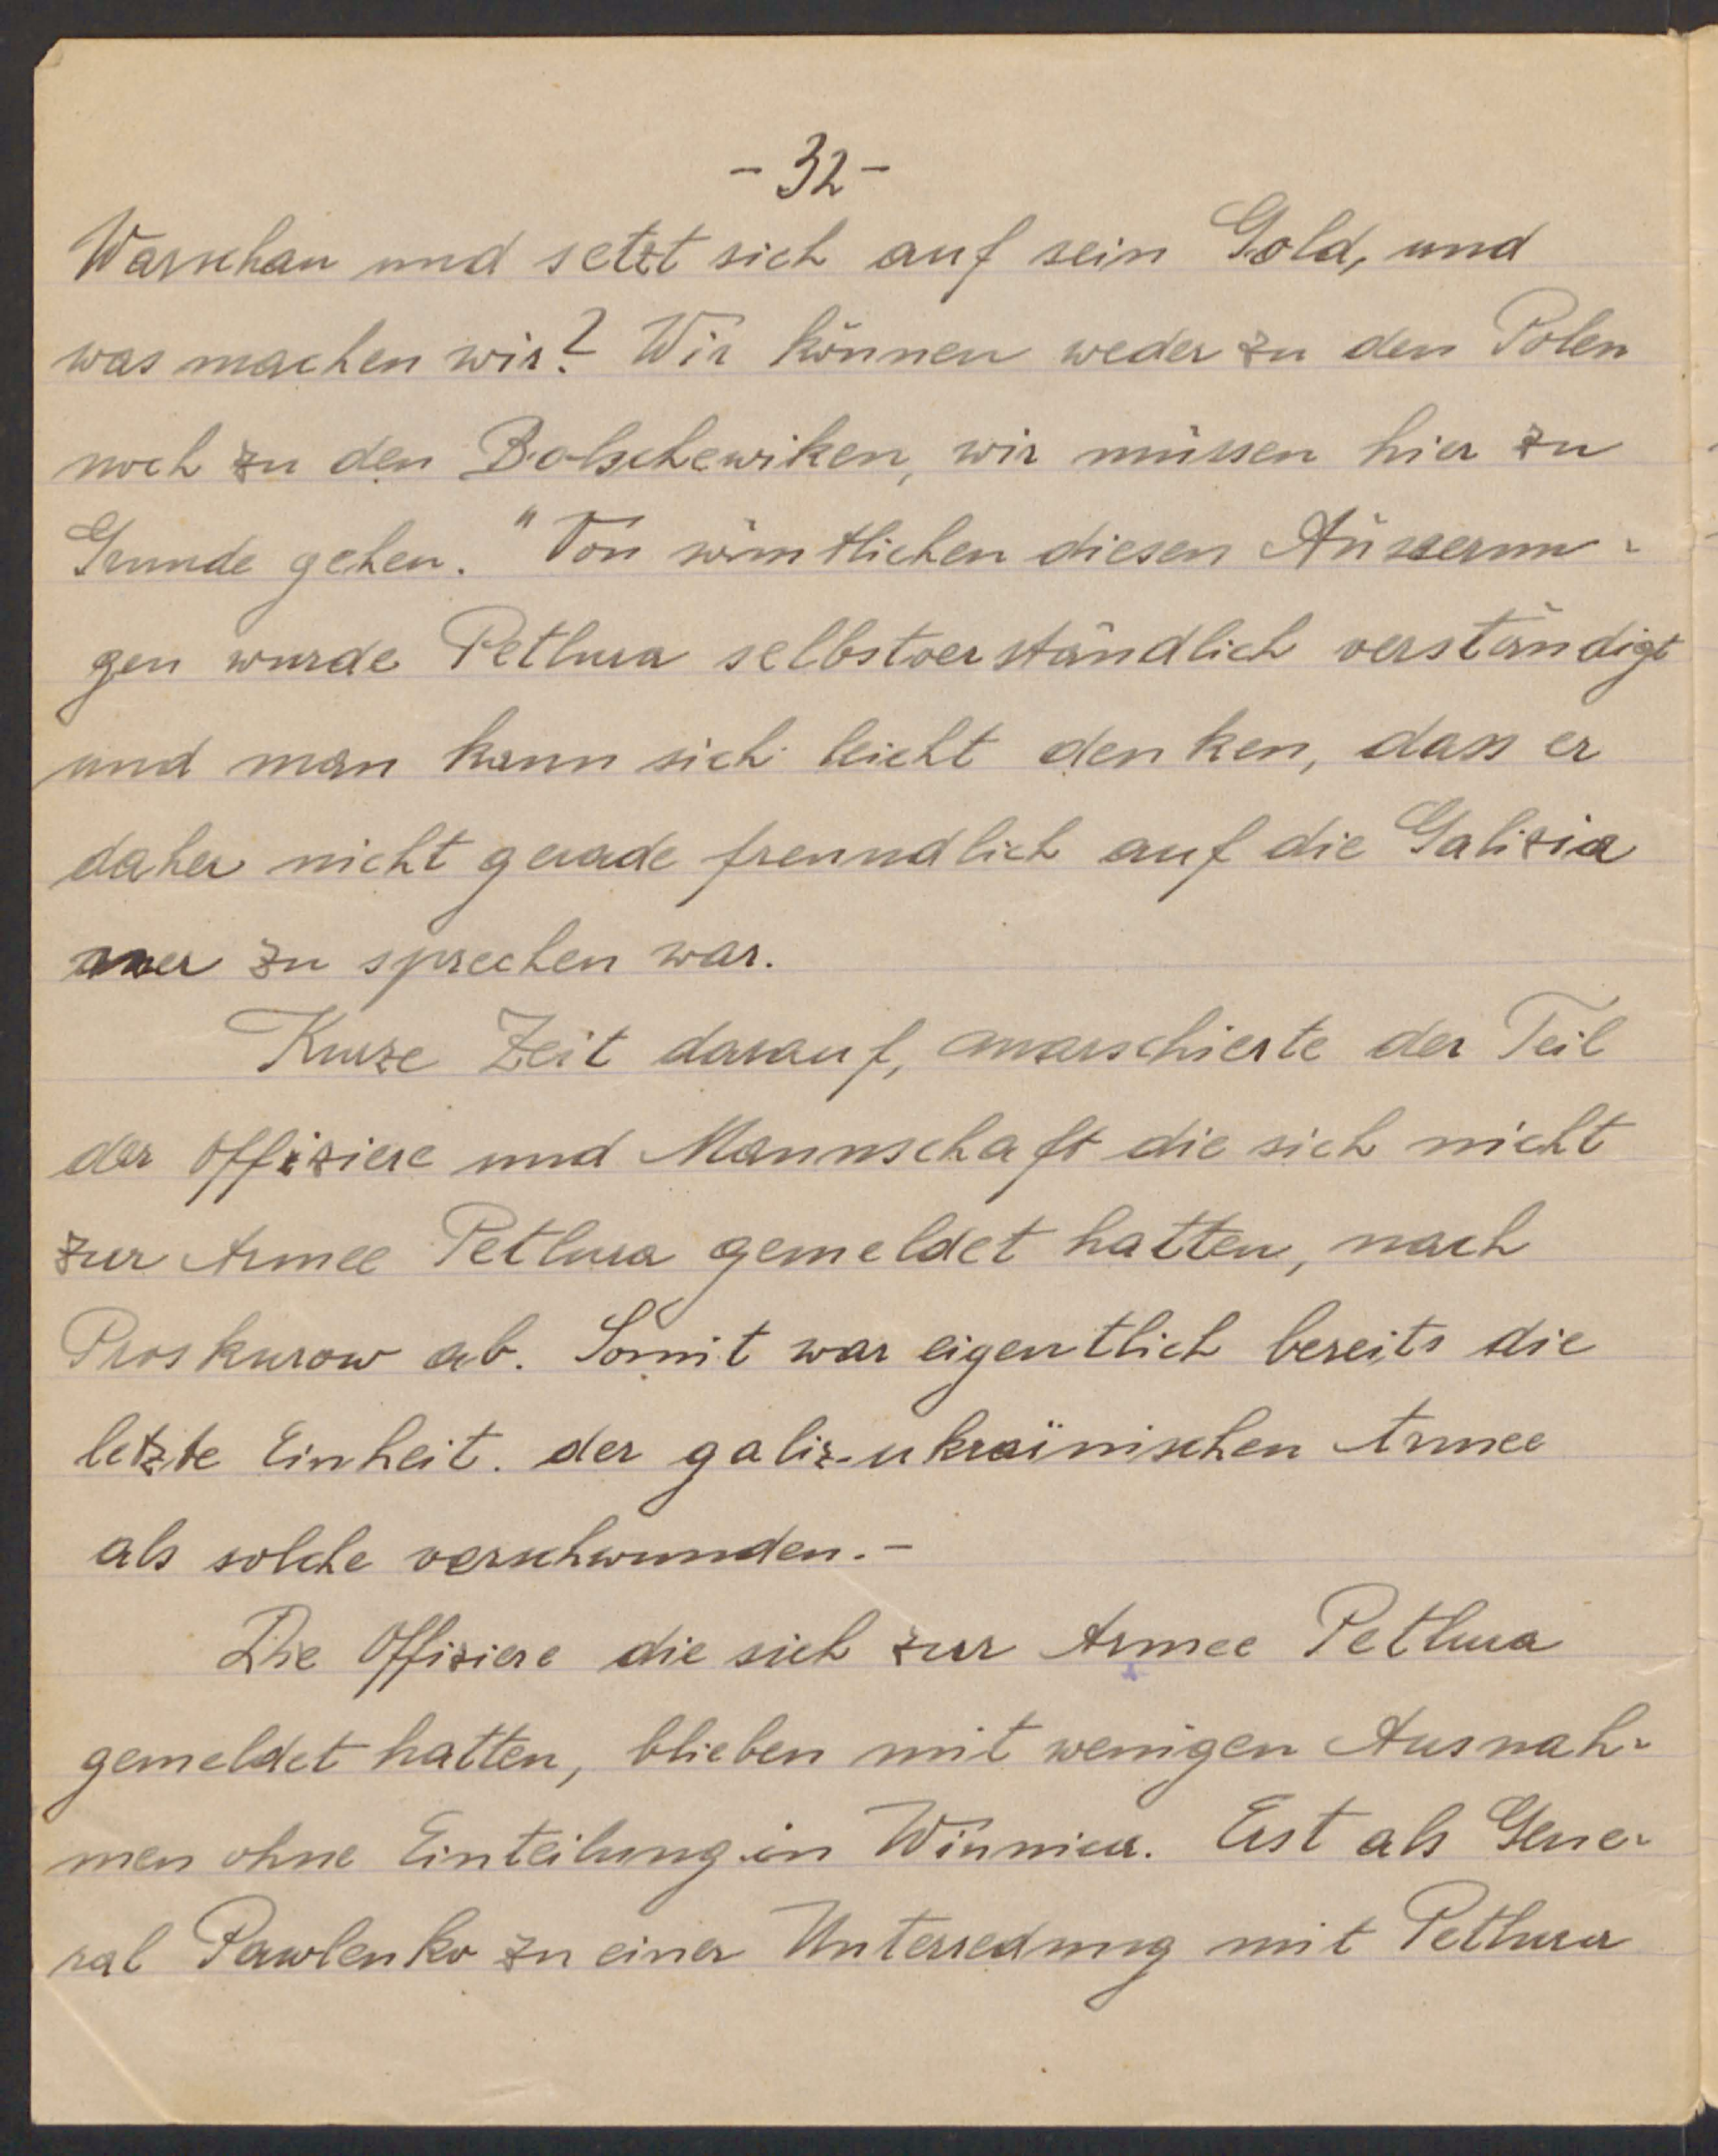 - 32 -
Warschau und setzt sich auf sein Gold, und
was machen wir? Wir können weder zu den Polen
noch zu den Bolschewiken, wir müssen hier zu
Grunde gehen." Von sämtlichen diesen Äusserun-
gen wurde Petlura selbstverständlich verständigt
und man kann sich leicht denken, dass er
daher nicht gerade freundlich auf die Galizia
ner zu sprechen war.
Kurze Zeit darauf, marschierte der Teil
der Offiziere und Mannschaft die sich nicht
zur Armee Petlura gemeldet hatten, nach
Proskurow ab. Somit war eigentlich bereits die
letzte Einheit. der galiz-ukraïnischen Armee
als solche verschwunden.-
Die Offiziere die sich zur Armee Petlura
gemeldet hatten, blieben mit wenigen Ausnah-
men ohne Einteilung in Winnica. Erst als Gene-
ral Pawlenko zu einer Unterredung mit Petlura